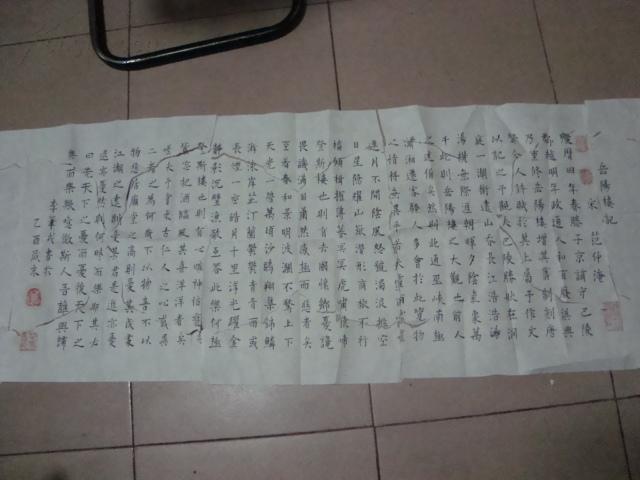 岳陽樓記
宋 范仲淹
慶曆四年春滕子京謫守巴陵
郡越明年政通人和百廢具興
乃重修岳陽樓增其舊制刻唐
賢今人詩賦於其上屬予作文
以記之予觀夫巴陵勝狀在洞
庭一湖銜遠山吞長江浩浩湯
湯橫無際涯朝暉夕陰氣象萬
千此則岳陽樓之大觀也前人
之述備矣然則北通巫峽南極
瀟湘遷客騷人多會於此覽物
之情得無異乎若夫霪雨霏霏
連月不開陰風怒號濁浪排空
日星隱耀山嶽潛形商旅不行
檣傾楫摧薄暮冥冥虎嘯猿啼
登斯樓也則有去國懷鄉憂讒
畏譏滿目蕭然感極而悲者矣
至若春和景明波瀾不驚上下
天光一碧萬頃沙鷗翔集錦鱗
游泳岸芷汀蘭鬱鬱青青而或
長煙一空皓月千里浮光躍金
靜影沉璧漁歌互答此樂何極
登斯樓也則有心曠神怡寵辱
皆忘把酒臨風其喜洋洋者矣
嗟夫予嘗求古仁人之心或異
二者之為何哉不以物喜不以
己悲居廟堂之高則憂其民處
江湖之遠則憂其君是進亦憂
退亦憂然則何時而樂耶其必
曰先天下之憂而憂後天下之
樂而樂歟噫微斯人吾誰與歸
乙酉歲末